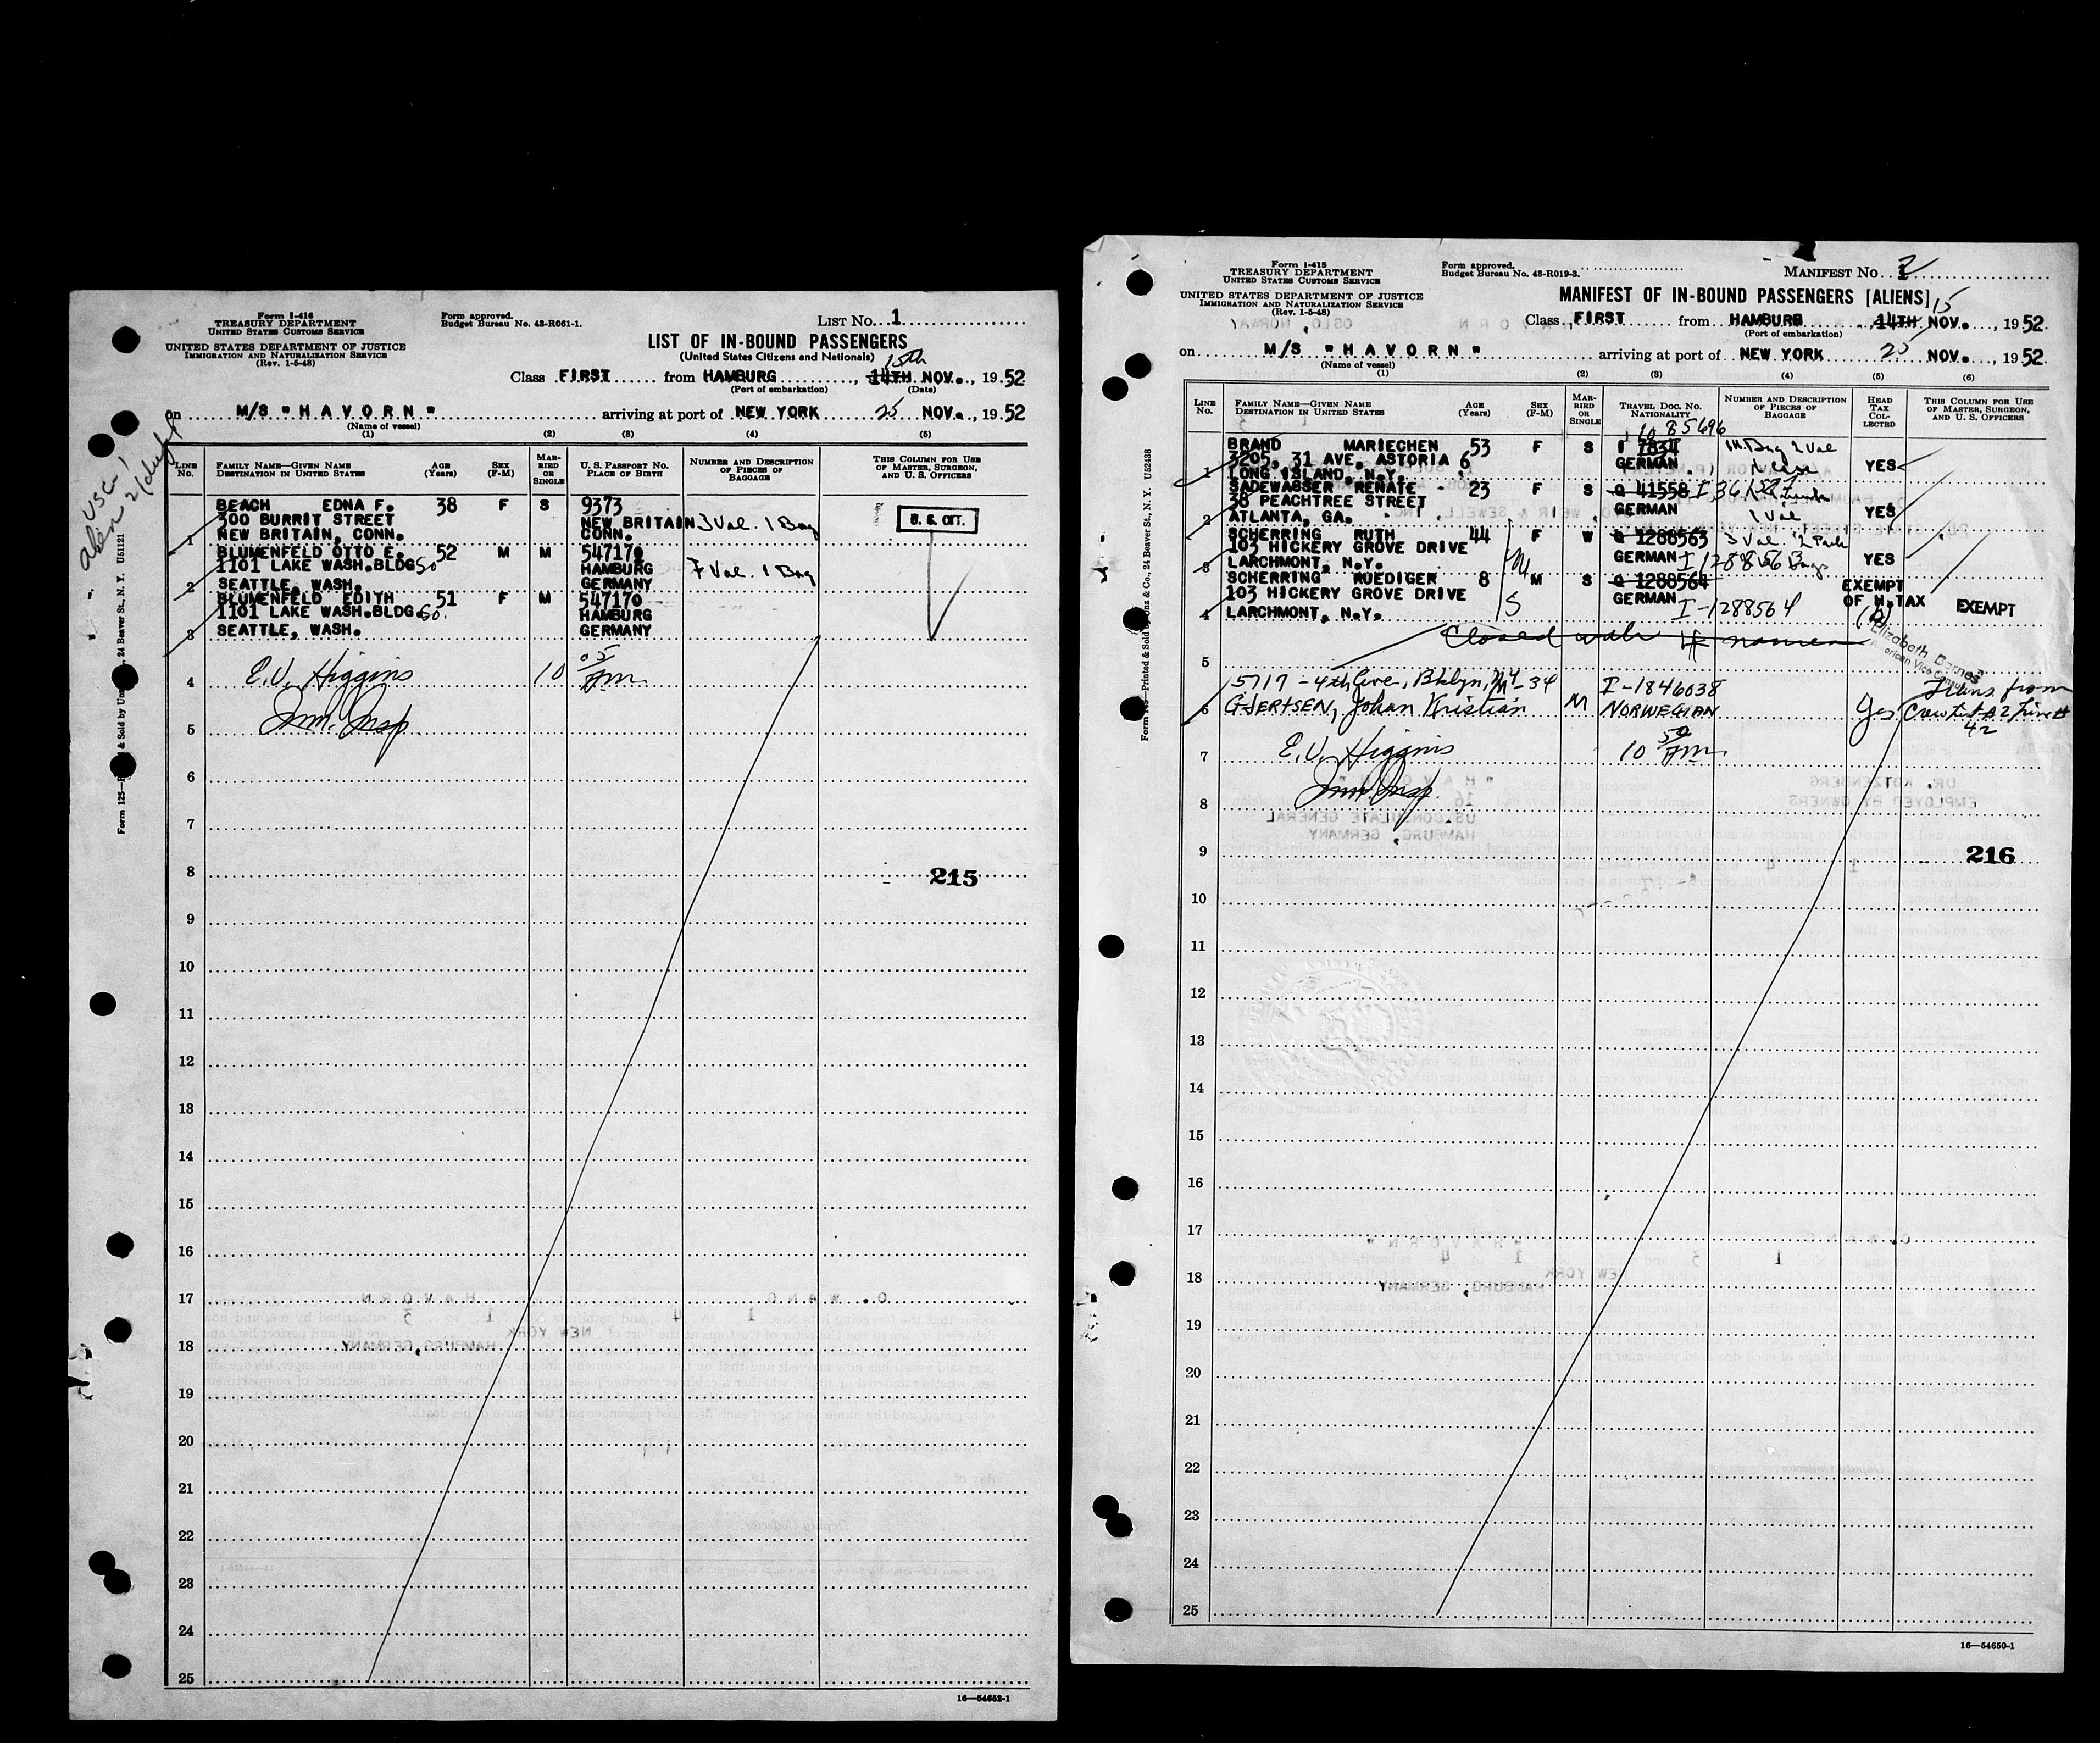 Form I-416
TREASURY DEPARTMENT
UNITED STATES CUSTOMS SERVICE
UNITED STATES DEPARTMENT OF JUSTICE
IMMIGRATION AND NATURALIZATION SERVICE
(Rev. 1-5-48)
Form approved.
Budget Bureau No. 43-R061-1.
LIST No. 1
LIST OF IN-BOUND PASSENGERS
(United States Citizens and Nationals)
15th
Class FIRST from HAMBURG, 14TH NOV., 1952
(Port of embarkation) (Date)
on M/S "HAVORN" arriving at port of NEW YORK 25 NOV., 1952
(Name of vessel)
(1) (2) (3) (4) (5)
LINE No. FAMILY NAME—GIVEN NAME DESTINATION IN UNITED STATES AGE (Years) SEX (F-M) MARRIED OR SINGLE U. S. PASSPORT NO. PLACE OF BIRTH NUMBER AND DESCRIPTION OF PIECES OF BAGGAGE THIS COLUMN FOR USE OF MASTER, SURGEON, AND U. S. OFFICERS
BEACH EDNA F. 38 F S 9373
300 BURRIT STREET NEW BRITAIN 3 Val. 1 Bag U. S. CIT.
1 NEW BRITAIN, CONN. CONN.
BLUMENFELD OTTO E. 52 M M 547170
1101 LAKE WASH.BLDG So HAMBURG 7 Val. 1 Bag
2 SEATTLE, WASH. GERMANY
BLUMENFELD EDITH 51 F M 547170
1101 LAKE WASH.BLDG. So. HAMBURG
3 SEATTLE, WASH. GERMANY
4 E.V. Higgins 10 05 Am
5 Imm. Insp.
6
7
8 215
9
10
11
12
13
14
15
16
17
18
19
20
21
22
23
24
25
16—54652-1
USC 1
alien 2
24 Beaver St., N. Y. U51121
Form I-415
TREASURY DEPARTMENT
UNITED STATES CUSTOMS SERVICE
UNITED STATES DEPARTMENT OF JUSTICE
IMMIGRATION AND NATURALIZATION SERVICE
(Rev. 1-5-48)
Form approved.
Budget Bureau No. 43-R019-3.
MANIFEST No. 2
MANIFEST OF IN-BOUND PASSENGERS [ALIENS]
15
Class FIRST from HAMBURG, 14TH NOV., 1952.
(Port of embarkation)
on M/S "HAVORN" arriving at port of NEW YORK 25 NOV., 1952.
(Name of vessel)
(1) (2) (3) (4) (5) (6)
LINE No. FAMILY NAME—GIVEN NAME DESTINATION IN UNITED STATES AGE (Years) SEX (F-M) MARRIED OR SINGLE TRAVEL DOC. NO. NATIONALITY NUMBER AND DESCRIPTION OF PIECES OF BAGGAGE HEAD TAX COLLECTED THIS COLUMN FOR USE OF MASTER, SURGEON, AND U. S. OFFICERS
85696
BRAND MARIECHEN 53 F S I 7834
3205, 31 AVE. ASTORIA 6 GERMAN YES
1 LONG ISLAND, N.Y.
SADEWASSER RENATE 23 F S Q 41558
38 PEACHTREE STREET GERMAN 1 Val YES
2 ATLANTA, GA.
SCHERRING RUTH 44 F W Q 1288563 3 Val.
103 HICKERY GROVE DRIVE GERMAN I 1288563 YES
3 LARCHMONT, N.Y.
SCHERRING RUEDIGER 8 M S Q 1288564 EXEMPT
103 HICKERY GROVE DRIVE GERMAN OF H.TAX EXEMPT
4 LARCHMONT, N.Y. I-1288564
Closed with 4 names
Elizabeth Barnes
American Vice Consul
5 5717 - 4th Ave, Bklyn, NY I-1846038 Trans from
6 GJERTSEN, Johan Kristian M NORWEGIAN Yes 42
7 E.V. Higgins 10 50 Am
8 Imm. Insp.
9 216
10
11
12
13
14
15
16
17
18
19
20
21
22
23
24
25
16—54650-1
24 Beaver St., N. Y. U52438